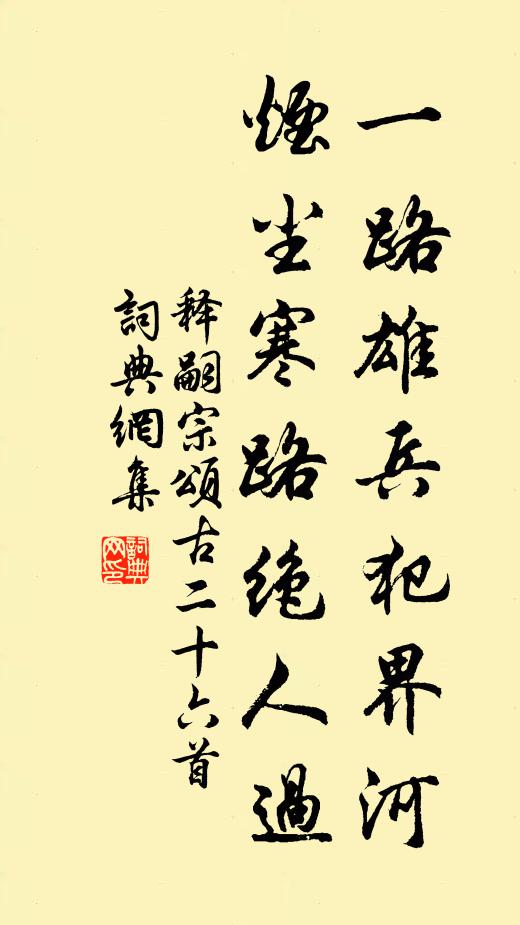 一路雄兵犯界河
煙尘寒路绝人過
释嗣宗頌古二十六首
詞典網集
詞典网印